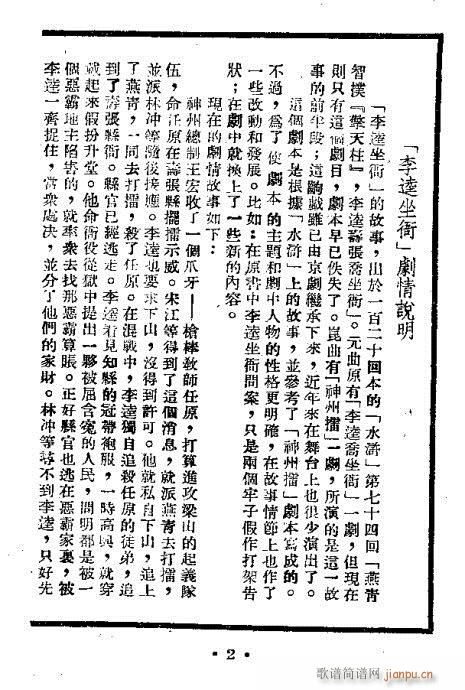 「李逵坐衙」劇情說明
「李逵坐衙」的故事，出於一百二十回本的「水滸」第七十四回「燕青
智撲『擎天柱』，李逵壽張喬坐衙」。元曲原有「李逵喬坐衙」一劇，但現在
則只有這個劇目，劇本早已佚失了。崑曲有「神州擂」一劇，所演的是這一故
事的前半段；這齣戲雖已由京劇繼承下來，近年來在舞台上也很少演出了。
這個劇本是根據「水滸」上的故事，並參考了「神州擂」劇本寫成的。
不過，爲了使劇本的主題和劇中人物的性格更明確，在故事情節上也作了
一些改動和發展。比如：在原書中李逵坐衙問案，只是兩個牢子假作打架告
狀；在劇中就換上了一些新的內容。
現在的劇情故事如下：
神州總制王宏收了一個爪牙──槍棒敎師任原，打算進攻梁山的起義隊
伍，命任原在壽張縣擺擂示威。宋江等得到了這個消息，就派燕青去打擂，
並派林冲等隨後接應。李逵也要求下山，沒得到許可。他就私自下山，追上
了燕青，一同去打擂，殺了任原。在混戰中，李逵獨自追殺任原的徒弟，追
到了壽張縣衙。縣官已經逃走。李逵看見知縣的冠帶袍服，一時高興，就穿
戴起來假扮升堂。他命衙役從獄中提出一夥被屈含寃的人民，問明都是被一
個惡霸地主陷害的，就率衆去找那惡霸算賬。正好縣官也逃在惡霸家裏，被
李逵一齊捉住，當衆處决，並分了他們的家財。林冲等尋不到李逵，只好先
• 2 •
歌谱简谱网
jianpu.cn